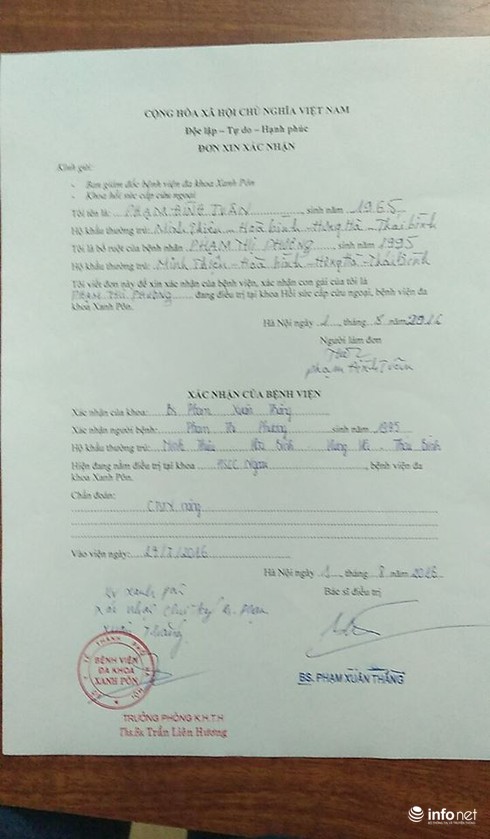 CỘNG HÒA XÃ HỘI CHỦ NGHĨA VIỆT NAM
Độc lập – Tự do – Hạnh phúc
ĐƠN XIN XÁC NHẬN
Kính gửi:
- Ban giám đốc bệnh viện đa khoa Xanh Pôn
- Khoa hồi sức cấp cứu ngoại
Tôi tên là: PHẠM ĐÌNH TUÂN, sinh năm 1965
Hộ khẩu thường trú: Minh Thiện – Hòa bình – Hưng Hà – Thái bình
Tôi là bố ruột của bệnh nhân PHẠM THỊ PHƯƠNG, sinh năm 1995
Hộ khẩu thường trú: Minh Thiện – Hòa bình – Hưng Hà – Thái Bình
Tôi viết đơn này để xin xác nhận của bệnh viện, xác nhận con gái của tôi là
PHẠM THỊ PHƯƠNG đang điều trị tại khoa Hồi sức cấp cứu ngoại, bệnh viện đa
khoa Xanh Pôn.
Hà Nội ngày 1, tháng 8 năm 2016
Người làm đơn
Phạm Đình Tuân
XÁC NHẬN CỦA BỆNH VIỆN
Xác nhận của khoa: Bs Phạm Xuân Thắng
Xác nhận người bệnh: Phạm Thị Phương sinh năm 1995
Hộ khẩu thường trú: Minh Thiện Hòa Bình Hưng Hà - Thái Bình
Hiện đang nằm điều trị tại khoa HSCC Ngoại, bệnh viện đa
khoa Xanh Pôn.
Chẩn đoán:
CTSN nặng
Vào viện ngày: 29/7/2016
Hà Nội ngày 1, tháng 8 năm 2016
Bác sĩ điều trị
BV Xanh Pôn
Xác nhận chữ ký Bs Phạm
Xuân Thắng
BỆNH VIỆN
ĐA KHOA
XANH PÔN
BS. PHẠM XUÂN THẮNG
TRƯỞNG PHÒNG K.H.T.H
Ths.Bs Trần Liên Hương
infonet